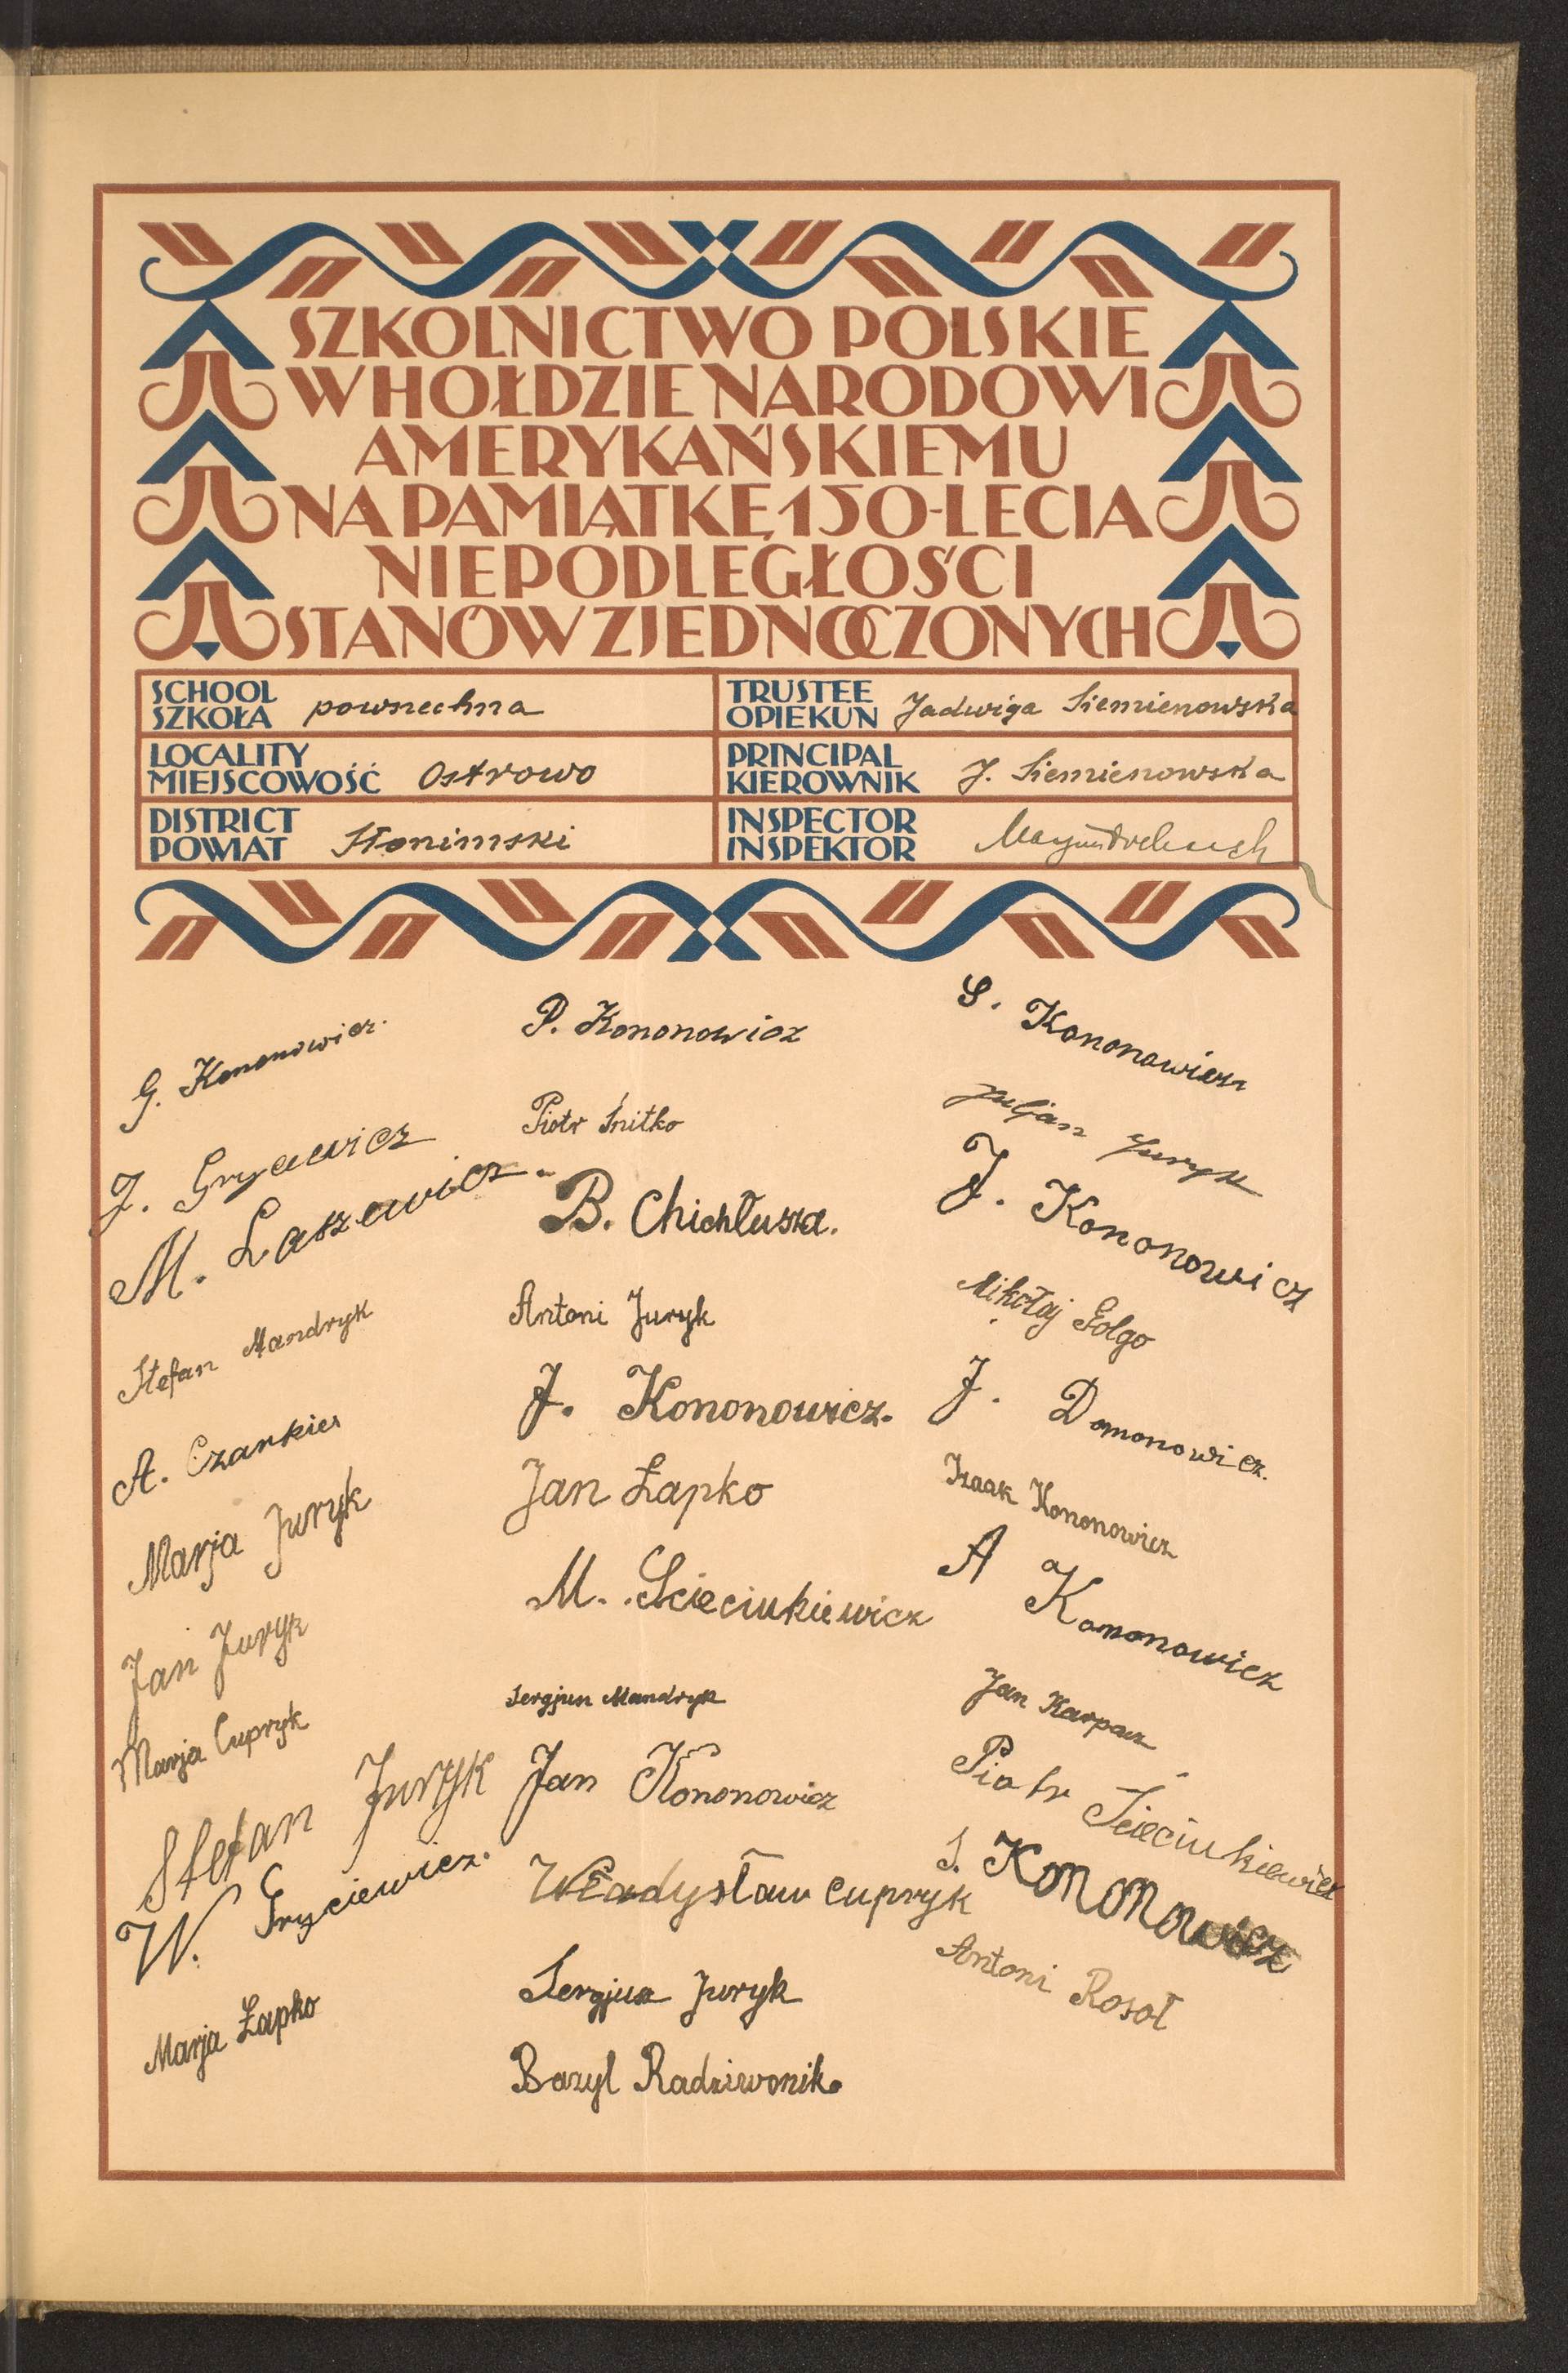 SZKOLNICTWO POLSKIE
W HOŁDZIE NARODOWI
AMERYKAŃSKIEMU
NA PAMIĄTKĘ 150-LECIA
NIEPODLEGŁOŚCI
STANÓW ZJEDNOCZONYCH
SCHOOL
SZKOŁA powszechna
TRUSTEE
OPIEKUN Jadwiga Siemienowska
LOCALITY
MIEJSCOWOŚĆ Ostrowo
PRINCIPAL
KIEROWNIK J. Siemienowska
DISTRICT
POWIAT Słonimski
INSPECTOR
INSPEKTOR
G. Kononowicz.
J. Grycewicz
M. Laszewicz.
Stefan Mandryk
A. Czarkies
Marja Juryk
Jan Juryk
Marja Cupryk
Stefan Juryk
W. Gryciewicz.
Marja Łapko
P. Kononowicz
Piotr Śnitko
B. Chichłusza.
Antoni Juryk
J. Kononowicz.
Jan Łapko
M. Scieciukiewicz
Sergjusz Mandryk
Jan Kononowicz
Władysław Cupryk
Sergjusz Juryk
Bazyl Radziwonik.
S. Kononowicz
Juljan Juryk
J. Kononowicz
Mikołaj Golgo
J. Domonowicz.
Izaak Kononowicz
A Kononowicz
Jan Karpacz
Piotr Ścieciukiewicz
S. Kononowicz
Antoni Rosoł